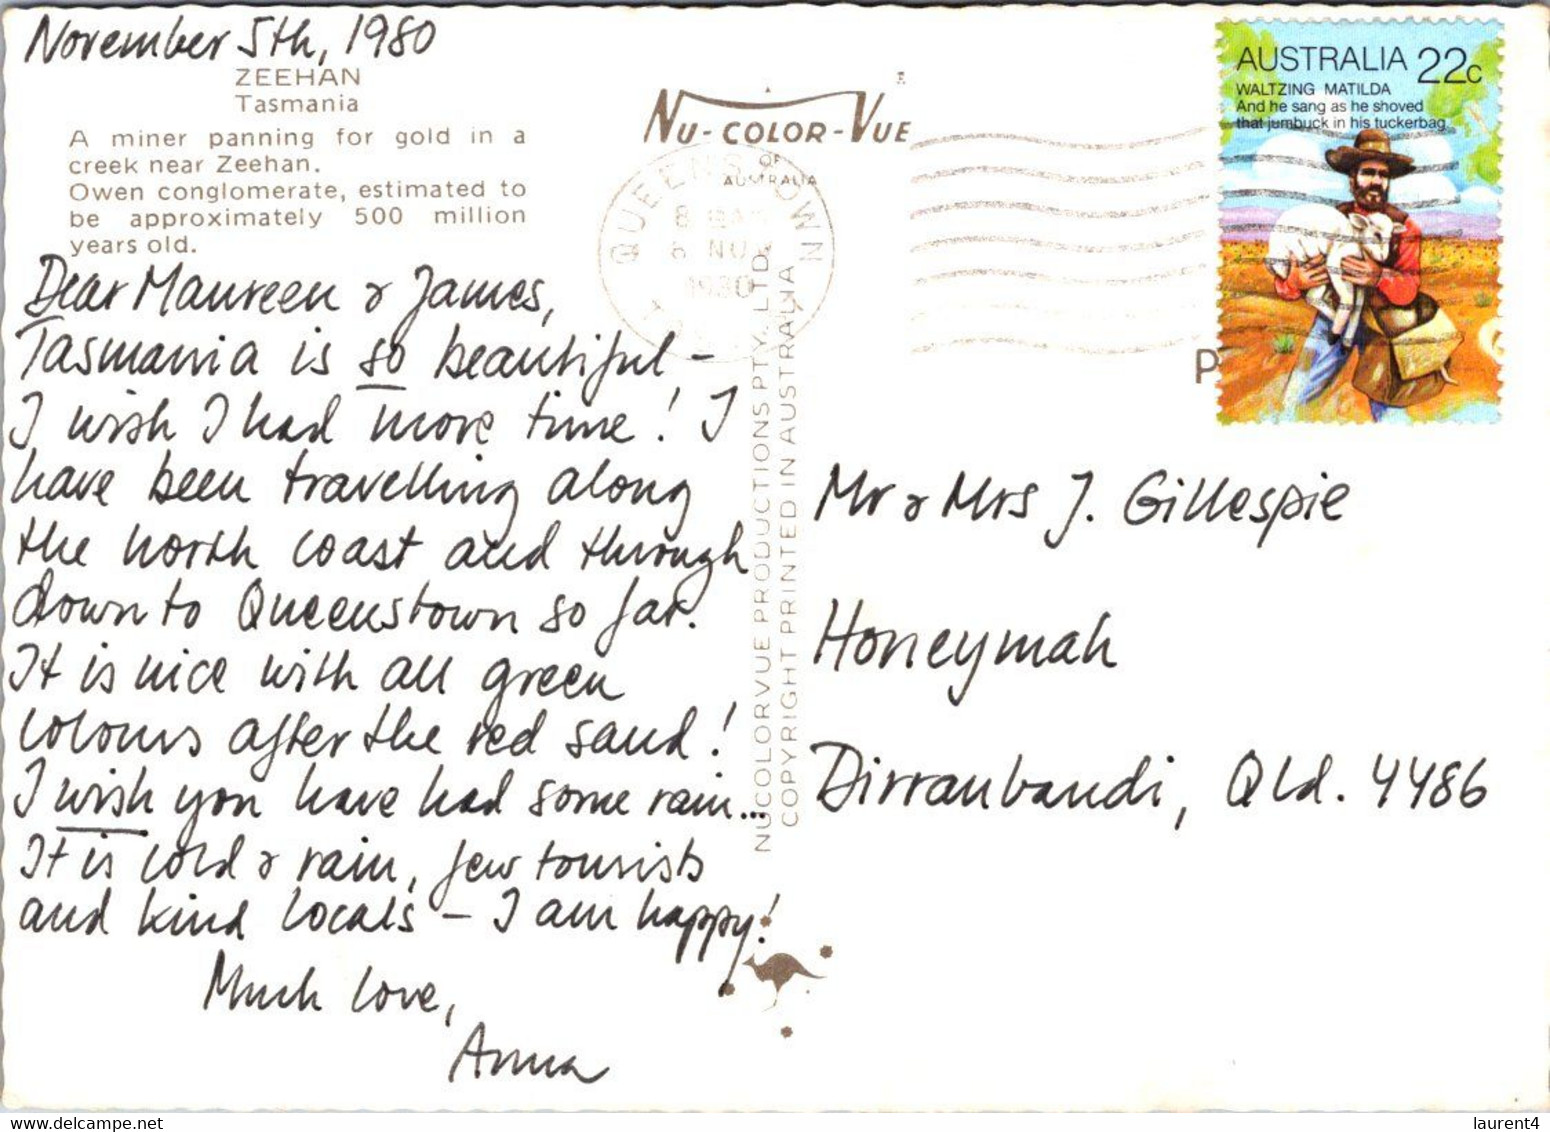 November 5th, 1980
ZEEHAN
Tasmania
A miner panning for gold in a
creek near Zeehan.
Owen conglomerate, estimated to
be approximately 500 million
years old.
Dear Maureen & James,
Tasmania is so beautiful –
I wish I had more time! I
have been travelling along
the north coast and through
down to Queenstown so far.
It is nice with all green
colours after the red sand!
I wish you have had some rain...
It is cold & rain, few tourists
and kind locals – I am happy!
Much love,
Anna
NU-COLOR-VUE
OF
AUSTRALIA
QUEENSTOWN
6 NOV
1980
NUCOLORVUE PRODUCTIONS PTY. LTD.
COPYRIGHT PRINTED IN AUSTRALIA
AUSTRALIA 22c
WALTZING MATILDA
And he sang as he shoved
that jumbuck in his tuckerbag
P
Mr & Mrs J. Gillespie
Honeymah
Dirranbandi, Qld. 4486
laurent4